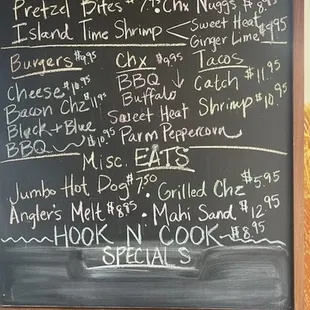 Pretzel Bites Chx Nuggs
Island Time Shrimp < Sweet Heat
Ginger Lime $9.95
Burgers $9.95 Chx $9.95 Tacos
Cheese $10.95 BBQ ↓ Catch $11.95
Bacon Chz $11.95 Buffalo Shrimp $10.95
Black + Blue Sweet Heat
BBQ $10.95 Parm Peppercorn
Misc. EATS
Jumbo Hot Dog $7.50 • Grilled Chz $5.95
Angler's Melt $8.95 • Mahi Sand $12.95
HOOK N COOK $8.95
SPECIALS